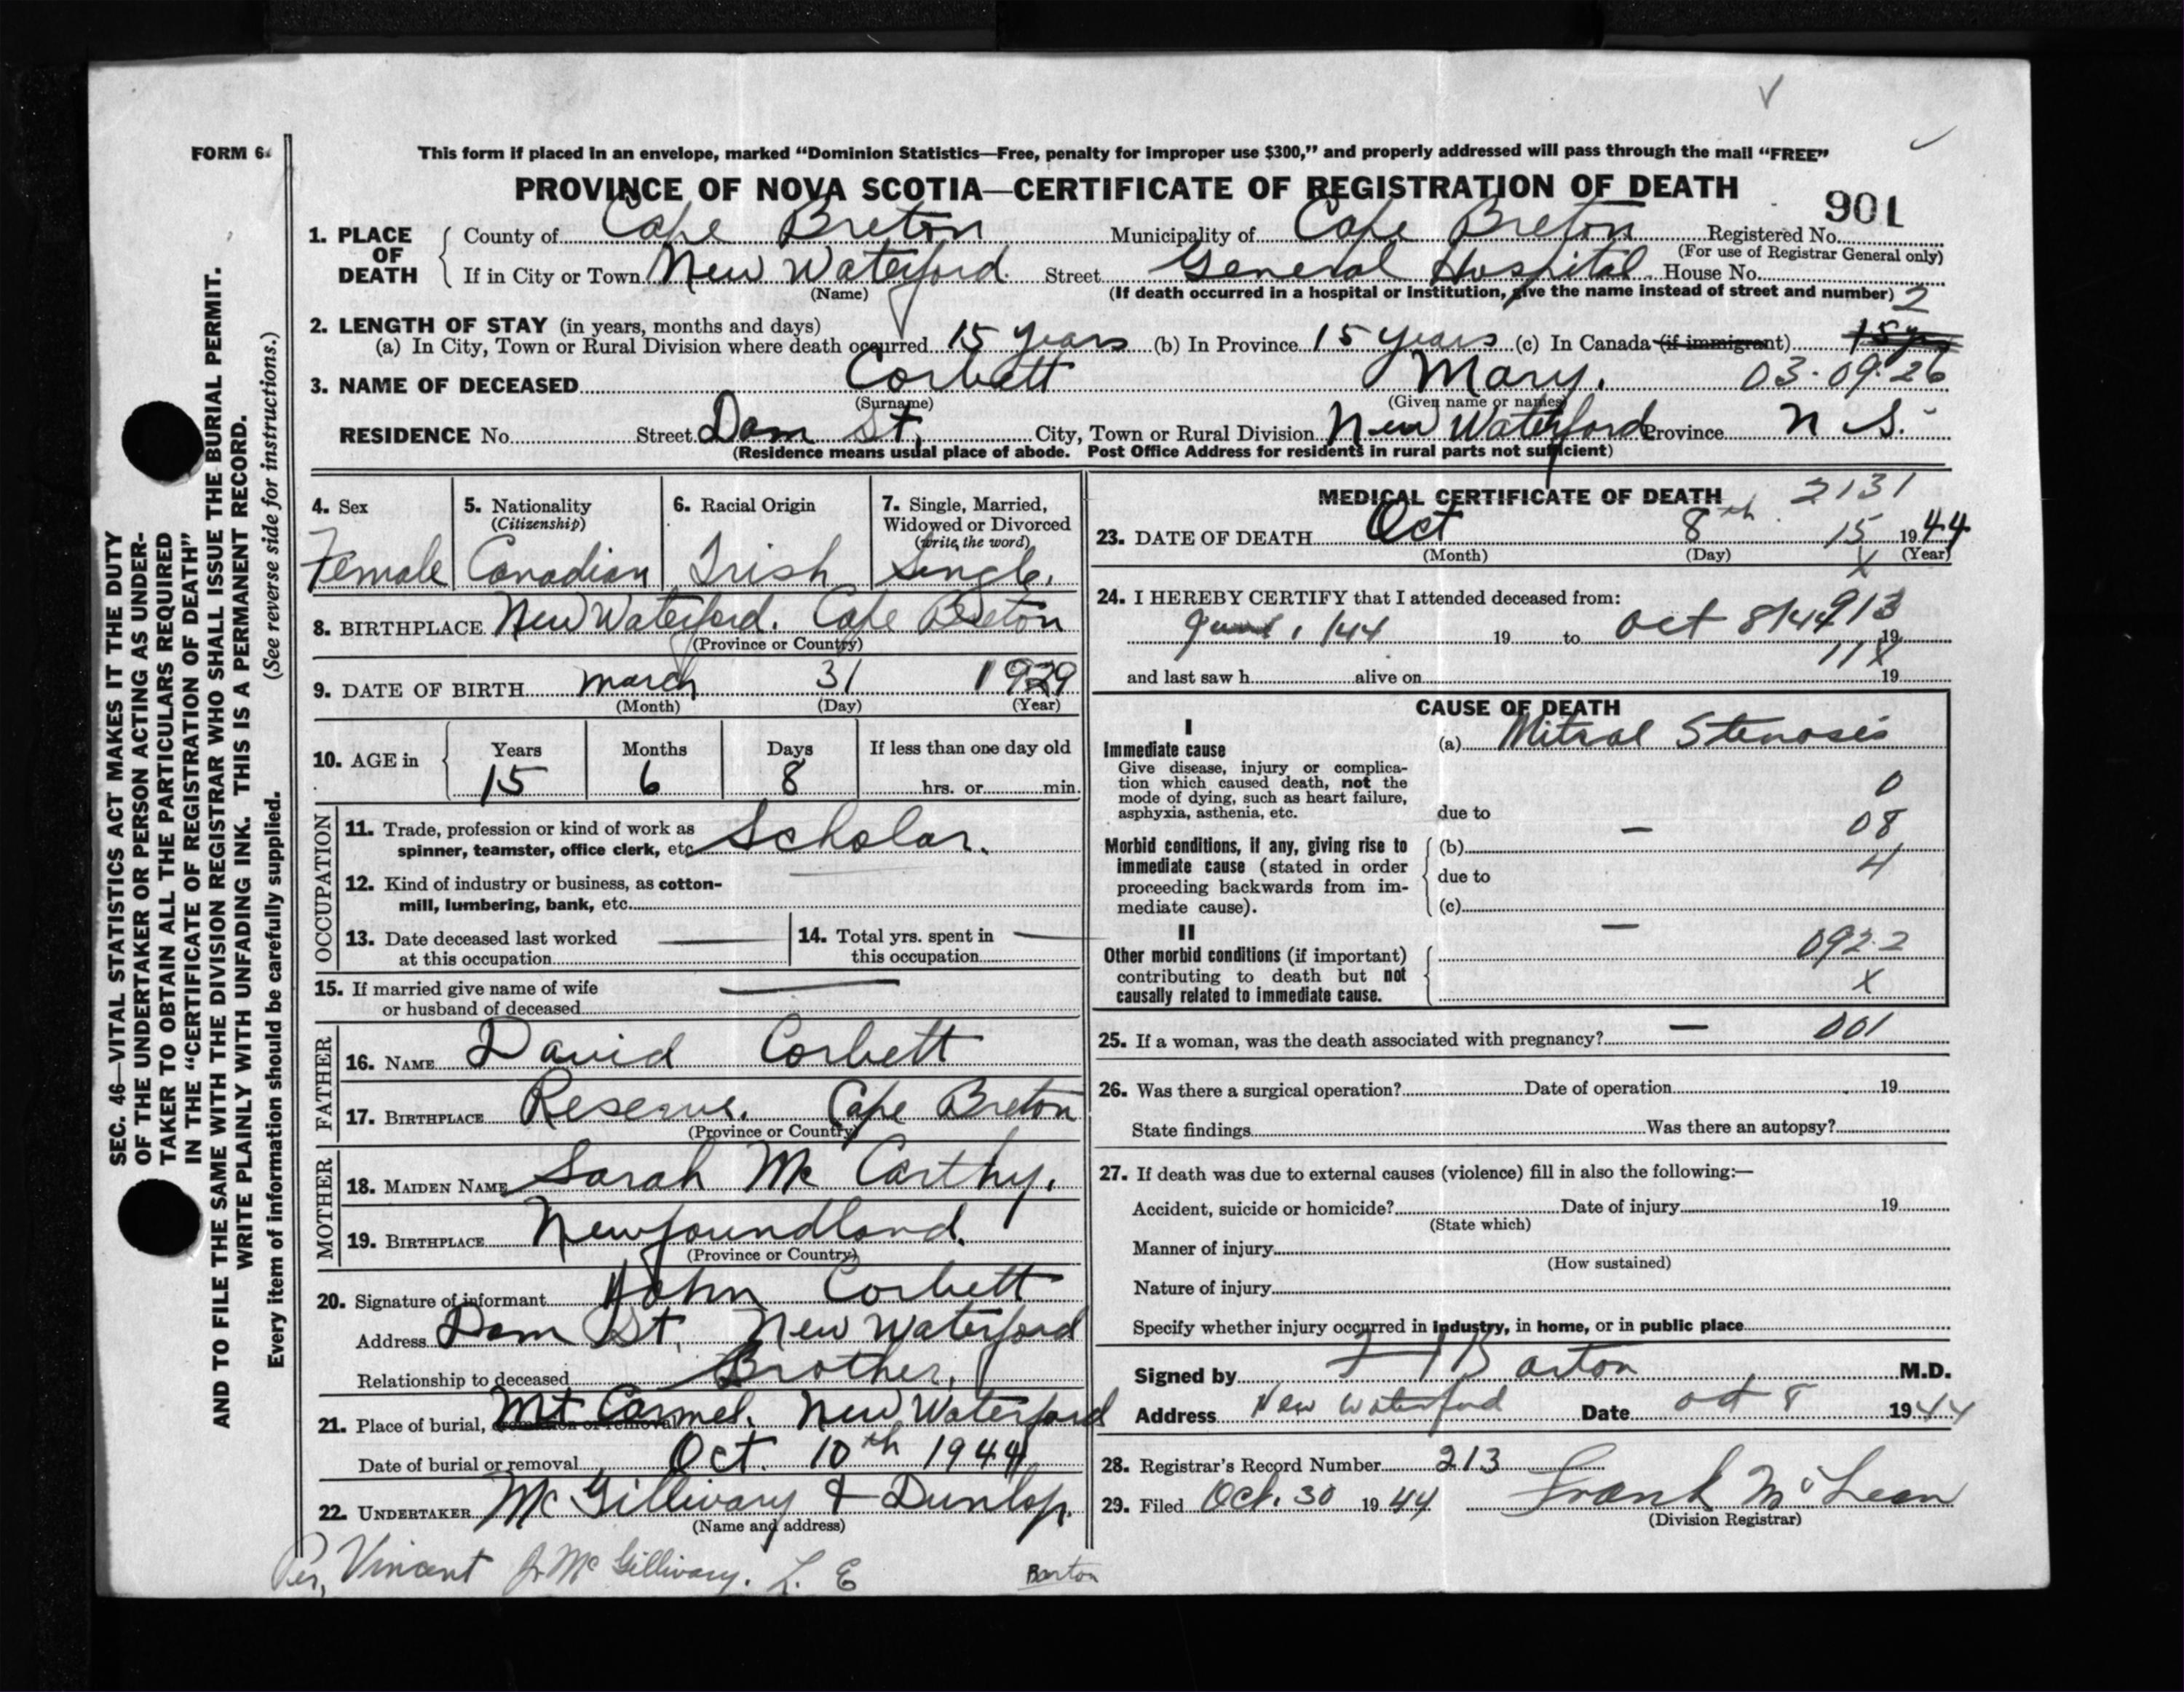 FORM 6.
This form if placed in an envelope, marked “Dominion Statistics—Free, penalty for improper use $300,” and properly addressed will pass through the mail “FREE”
PROVINCE OF NOVA SCOTIA—CERTIFICATE OF REGISTRATION OF DEATH
901
1. PLACE OF DEATH
County of Cape Breton Municipality of Cape Breton Registered No.
(For use of Registrar General only)
If in City or Town New Waterford Street General Hospital House No.
(Name) (If death occurred in a hospital or institution, give the name instead of street and number) 2
2. LENGTH OF STAY (in years, months and days)
(a) In City, Town or Rural Division where death occurred 15 years (b) In Province 15 years (c) In Canada (if immigrant) 15 yrs
3. NAME OF DECEASED Corbett Mary. 03-09-26
(Surname) (Given name or names)
RESIDENCE No. Street Dam St. City, Town or Rural Division New Waterford Province N S.
(Residence means usual place of abode. Post Office Address for residents in rural parts not sufficient)
4. Sex
Female
5. Nationality
(Citizenship)
Canadian
6. Racial Origin
Irish
7. Single, Married,
Widowed or Divorced
(write the word)
Single.
8. BIRTHPLACE New Waterford. Cape Breton
(Province or Country)
9. DATE OF BIRTH March 31 1929
(Month) (Day) (Year)
10. AGE in Years Months Days If less than one day old
15 6 8 hrs. or min.
OCCUPATION
11. Trade, profession or kind of work as
spinner, teamster, office clerk, etc. Scholar.
12. Kind of industry or business, as cotton-
mill, lumbering, bank, etc.
13. Date deceased last worked
at this occupation
14. Total yrs. spent in
this occupation
15. If married give name of wife
or husband of deceased
FATHER
16. NAME David Corbett
17. BIRTHPLACE Reserve. Cape Breton
(Province or Country)
MOTHER
18. MAIDEN NAME Sarah Mc Carthy.
19. BIRTHPLACE Newfoundland.
(Province or Country)
20. Signature of informant John Corbett
Address Dam St. New Waterford
Relationship to deceased Brother.
21. Place of burial, cremation or removal Mt Carmel. New Waterford
Date of burial or removal Oct. 10th 1944
22. UNDERTAKER McGillivary & Dunlop.
(Name and address)
Per, Vincent J. McGillivary. L. E
Barton
MEDICAL CERTIFICATE OF DEATH 2131
23. DATE OF DEATH Oct 8th 15 1944
(Month) (Day) (Year)
X
24. I HEREBY CERTIFY that I attended deceased from:
June 1/44 19 to Oct 8/44 19
913
11X
and last saw h alive on 19
CAUSE OF DEATH
I
Immediate cause (a) Mitral Stenosis
Give disease, injury or complica-
tion which caused death, not the
mode of dying, such as heart failure,
asphyxia, asthenia, etc.
0
due to
08
Morbid conditions, if any, giving rise to
immediate cause (stated in order
proceeding backwards from im-
mediate cause).
(b)
4
due to
(c)
II
Other morbid conditions (if important)
contributing to death but not
causally related to immediate cause.
092.2
X
25. If a woman, was the death associated with pregnancy? — 001
26. Was there a surgical operation? Date of operation 19
State findings Was there an autopsy?
27. If death was due to external causes (violence) fill in also the following:—
Accident, suicide or homicide? Date of injury 19
(State which)
Manner of injury
(How sustained)
Nature of injury
Specify whether injury occurred in industry, in home, or in public place
Signed by F H Barton M.D.
Address New Waterford Date Oct 8 1944
28. Registrar's Record Number 213
29. Filed Oct. 30 1944 Frank McLean
(Division Registrar)
SEC. 46—VITAL STATISTICS ACT MAKES IT THE DUTY
OF THE UNDERTAKER OR PERSON ACTING AS UNDER-
TAKER TO OBTAIN ALL THE PARTICULARS REQUIRED
IN THE “CERTIFICATE OF REGISTRATION OF DEATH”
AND TO FILE THE SAME WITH THE DIVISION REGISTRAR WHO SHALL ISSUE THE BURIAL PERMIT.
WRITE PLAINLY WITH UNFADING INK. THIS IS A PERMANENT RECORD.
Every item of information should be carefully supplied. (See reverse side for instructions.)